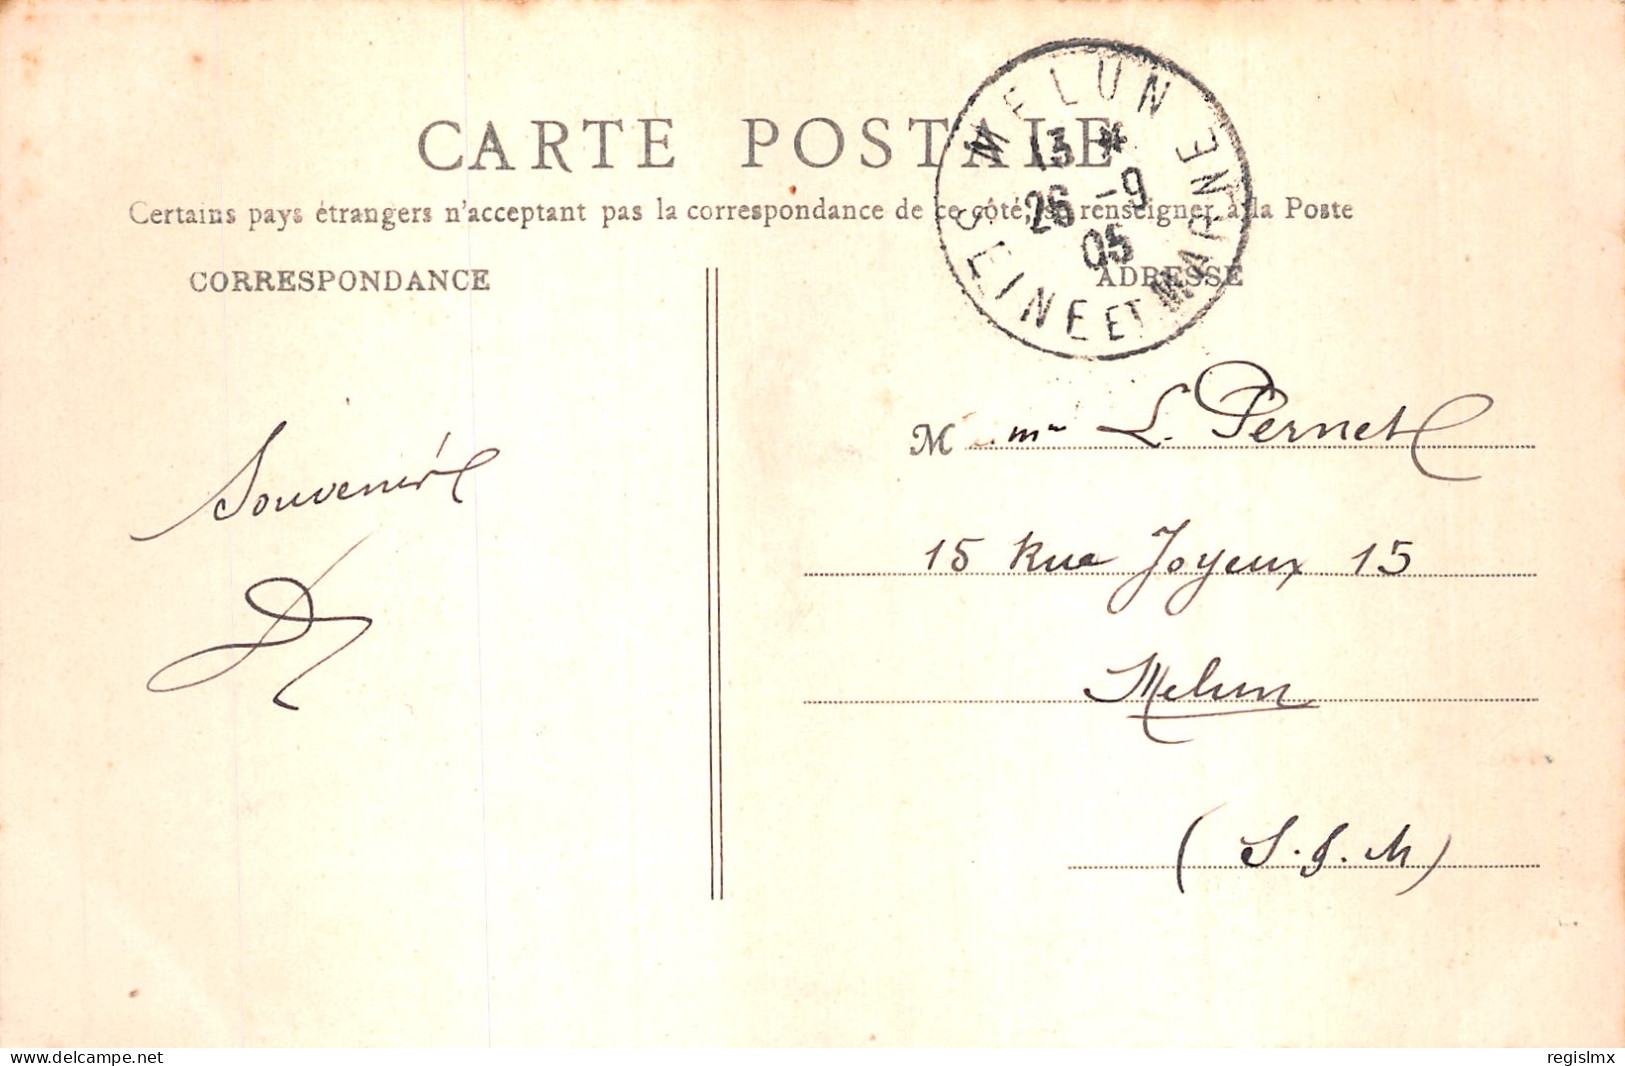 CARTE POSTALE
Certains pays étrangers n'acceptant pas la correspondance de ce côté, se renseigner à la Poste
MELUN
13 *
26 -9
05
SEINE ET MARNE
CORRESPONDANCE
ADRESSE
Souvenir
M me L. Pernet
15 Rue Joyeux 15
Melun
(S. S. M)
www.delcampe.net
regislmx